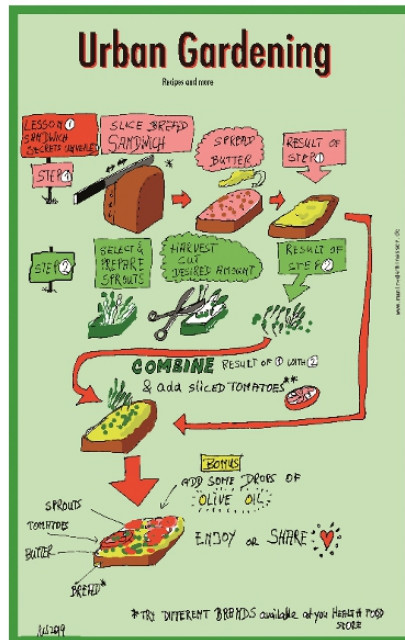 Urban Gardening
Recipes and more
LESSON 1
SANDWICH
SECRETS
SLICE BREAD
SANDWICH *
SPREAD
BUTTER
RESULT OF
STEP 1
STEP 1
STEP 2
SELECT &
PREPARE
SPROUTS
HARVEST
CUT
DESIRED AMOUNT
RESULT OF
STEP 2
COMBINE RESULT OF 1 WITH 2
& add sliced TOMATOES **
BONUS
ADD SOME DROPS OF
OLIVE OIL
ENJOY or SHARE
SPROUTS
TOMATOES
BUTTER
BREAD*
*TRY DIFFERENT BRANDS available at you HEALTH FOOD
STORE
2019